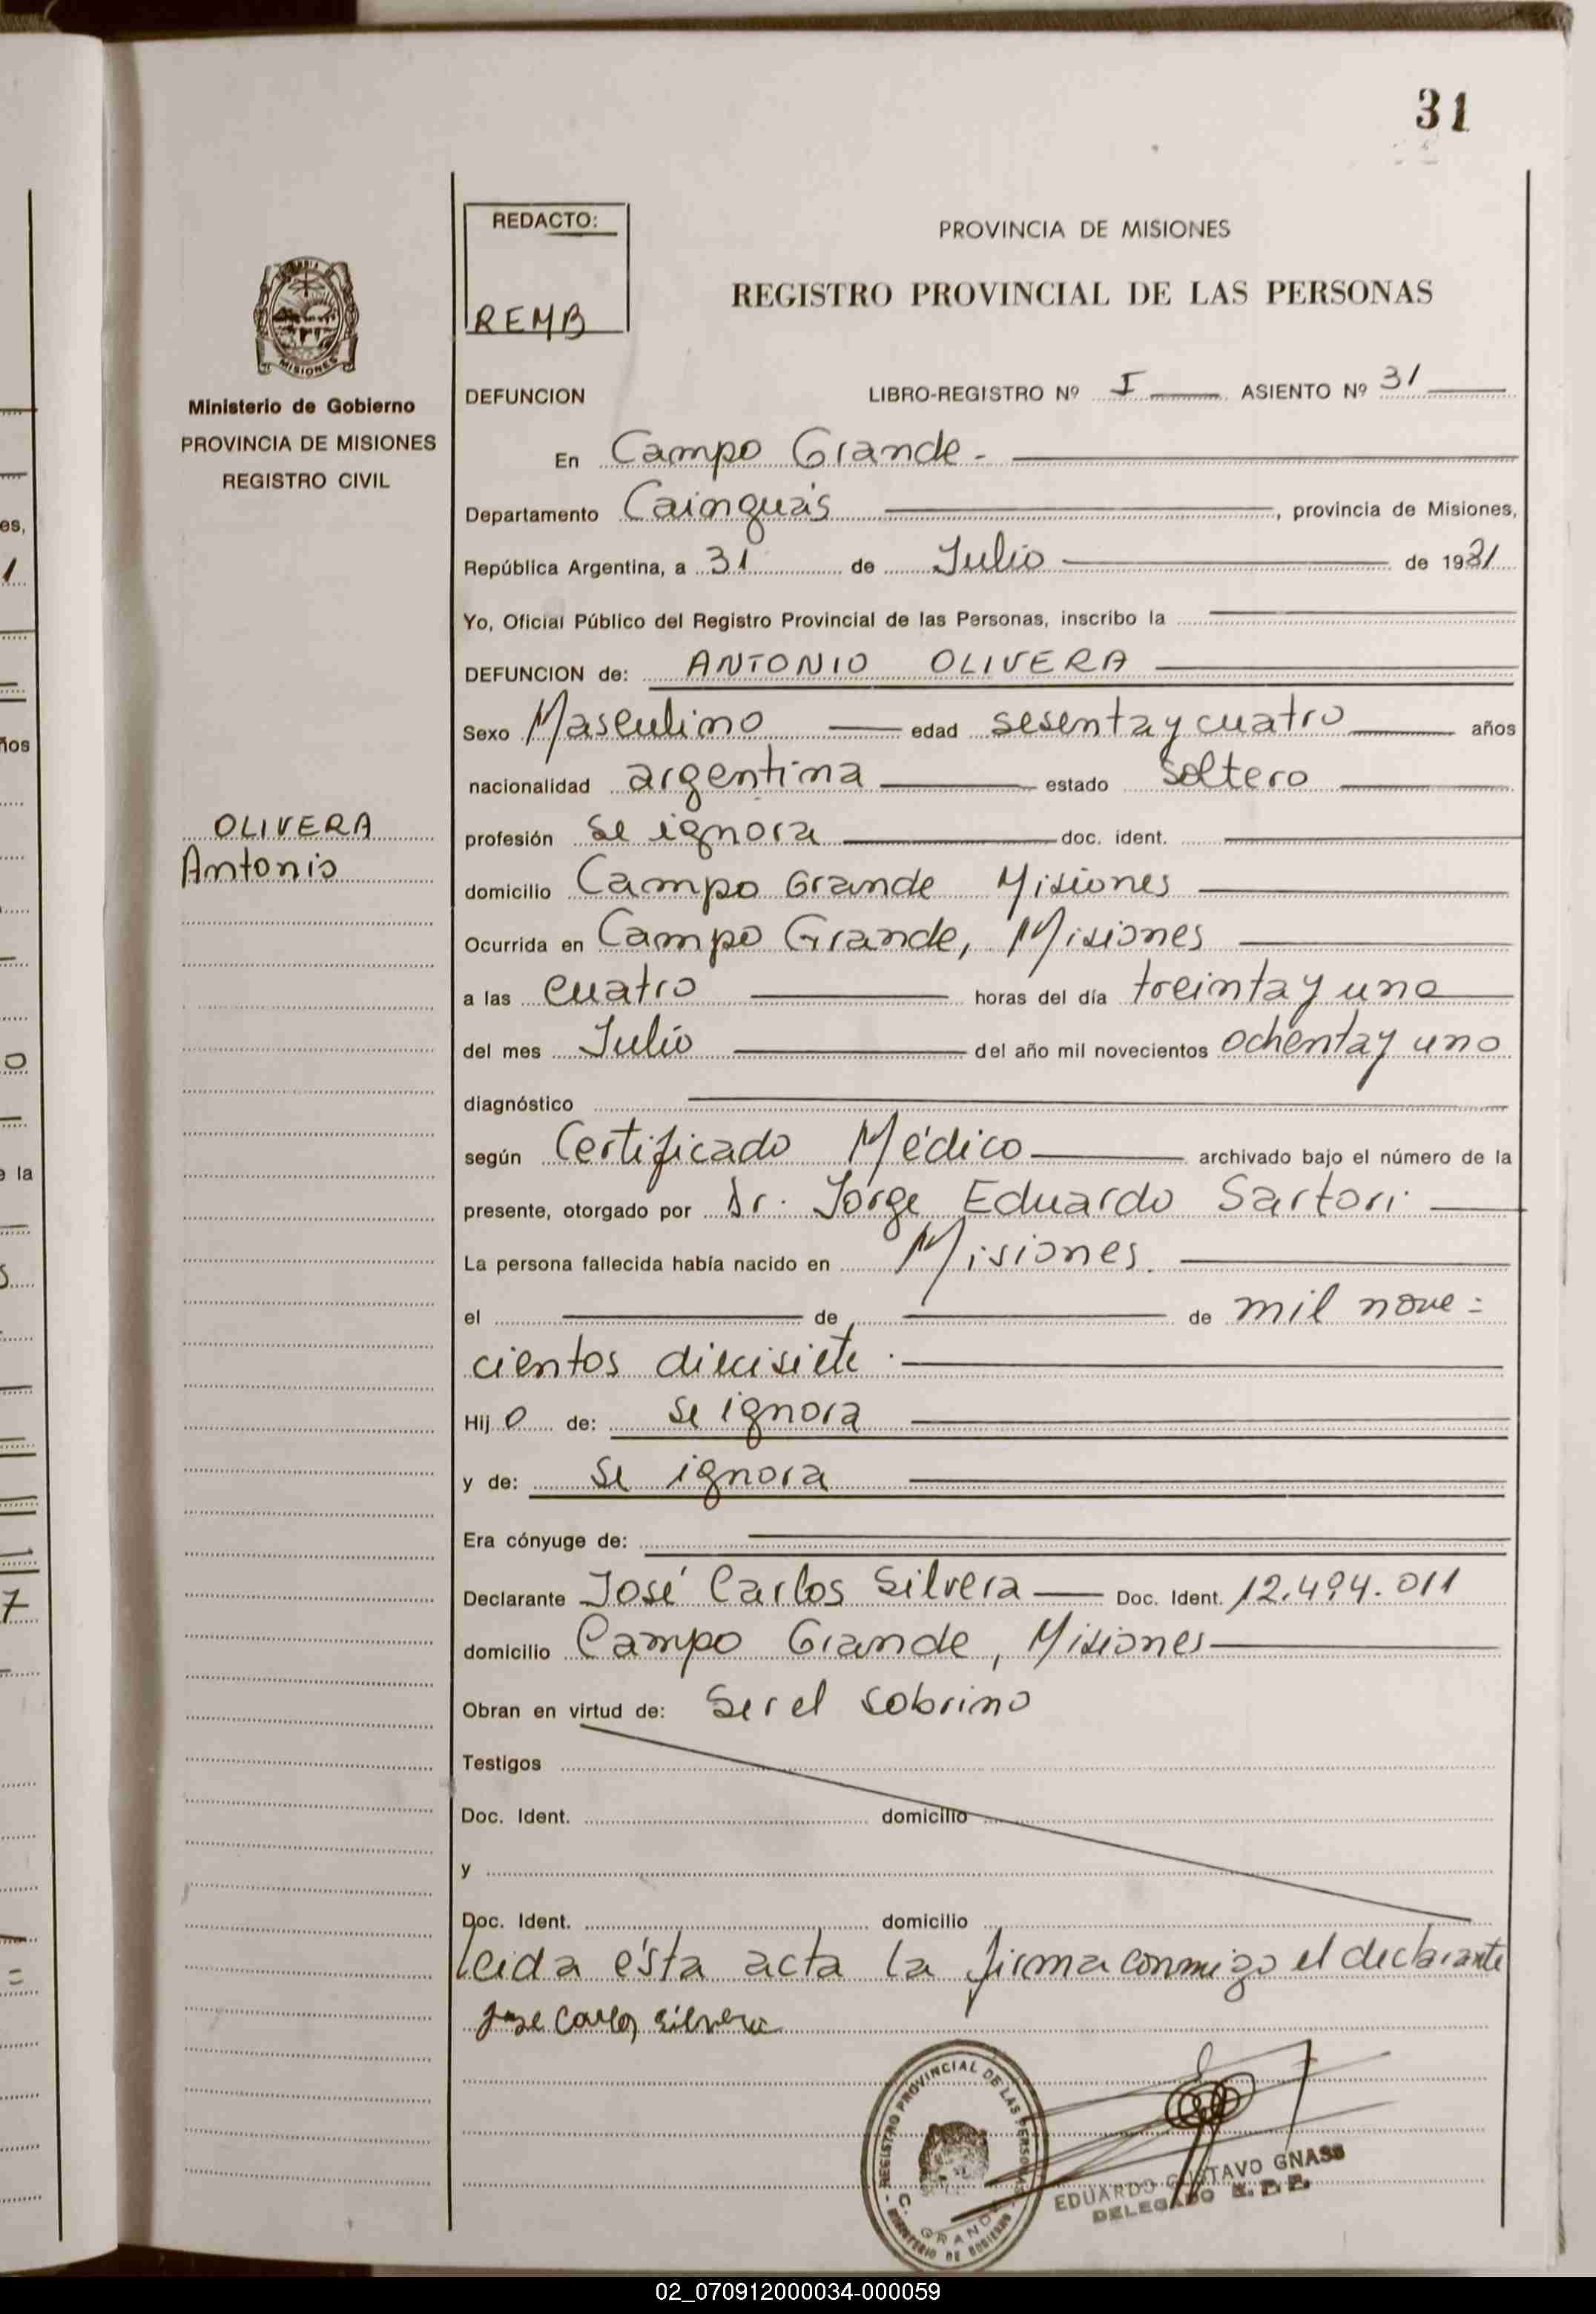 31
REDACTO:
REMB
PROVINCIA DE MISIONES
REGISTRO PROVINCIAL DE LAS PERSONAS
MISIONES
Ministerio de Gobierno
PROVINCIA DE MISIONES
REGISTRO CIVIL
OLIVERA
Antonio
DEFUNCION LIBRO-REGISTRO Nº I ASIENTO Nº 31
En Campo Grande.-
Departamento Cainguás, provincia de Misiones,
República Argentina, a 31 de Julio de 1981
Yo, Oficial Público del Registro Provincial de las Personas, inscribo la
DEFUNCION de: ANTONIO OLIVERA
Sexo Masculino edad sesenta y cuatro años
nacionalidad argentina estado soltero
profesión se ignora doc. ident.
domicilio Campo Grande Misiones
Ocurrida en Campo Grande, Misiones
a las cuatro horas del día treinta y uno
del mes Julio del año mil novecientos ochenta y uno
diagnóstico
según Certificado Médico archivado bajo el número de la
presente, otorgado por Dr. Jorge Eduardo Sartori
La persona fallecida había nacido en Misiones.
el de de mil nove=
cientos diecisiete.
Hijo de: se ignora
y de: se ignora
Era cónyuge de:
Declarante José Carlos Silvera Doc. Ident. 12.494.011
domicilio Campo Grande, Misiones
Obran en virtud de: Ser el sobrino
Testigos
Doc. Ident. domicilio
y
Doc. Ident. domicilio
Leida ésta acta la firma conmigo el declarante
Jose Carlos Silvera
REGISTRO PROVINCIAL DE LAS PERSONAS
C. GRANDE
MINISTERIO DE GOBIERNO
EDUARDO GUSTAVO GNASS
DELEGADO R. P. P.
02_070912000034-000059